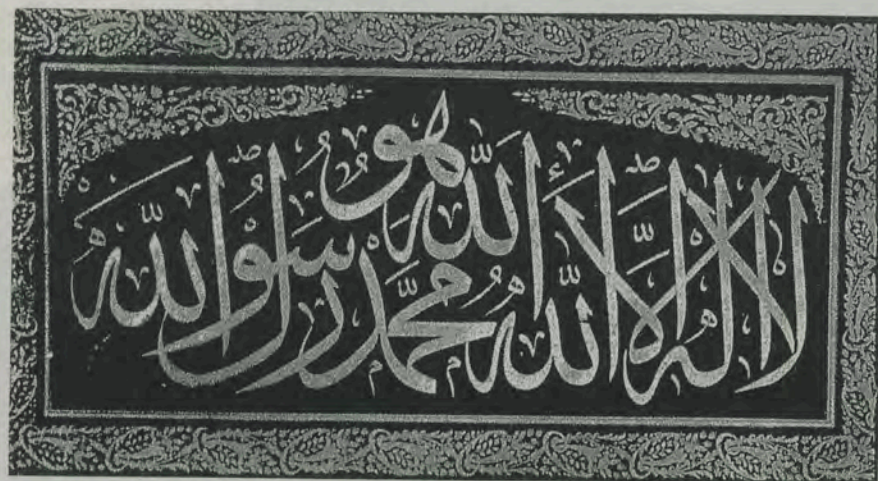 هو
الله
لَا إِلٰهَ إِلَّا اللّٰهُ مُحَمَّدٌ رَسُولُ اللّٰهِ